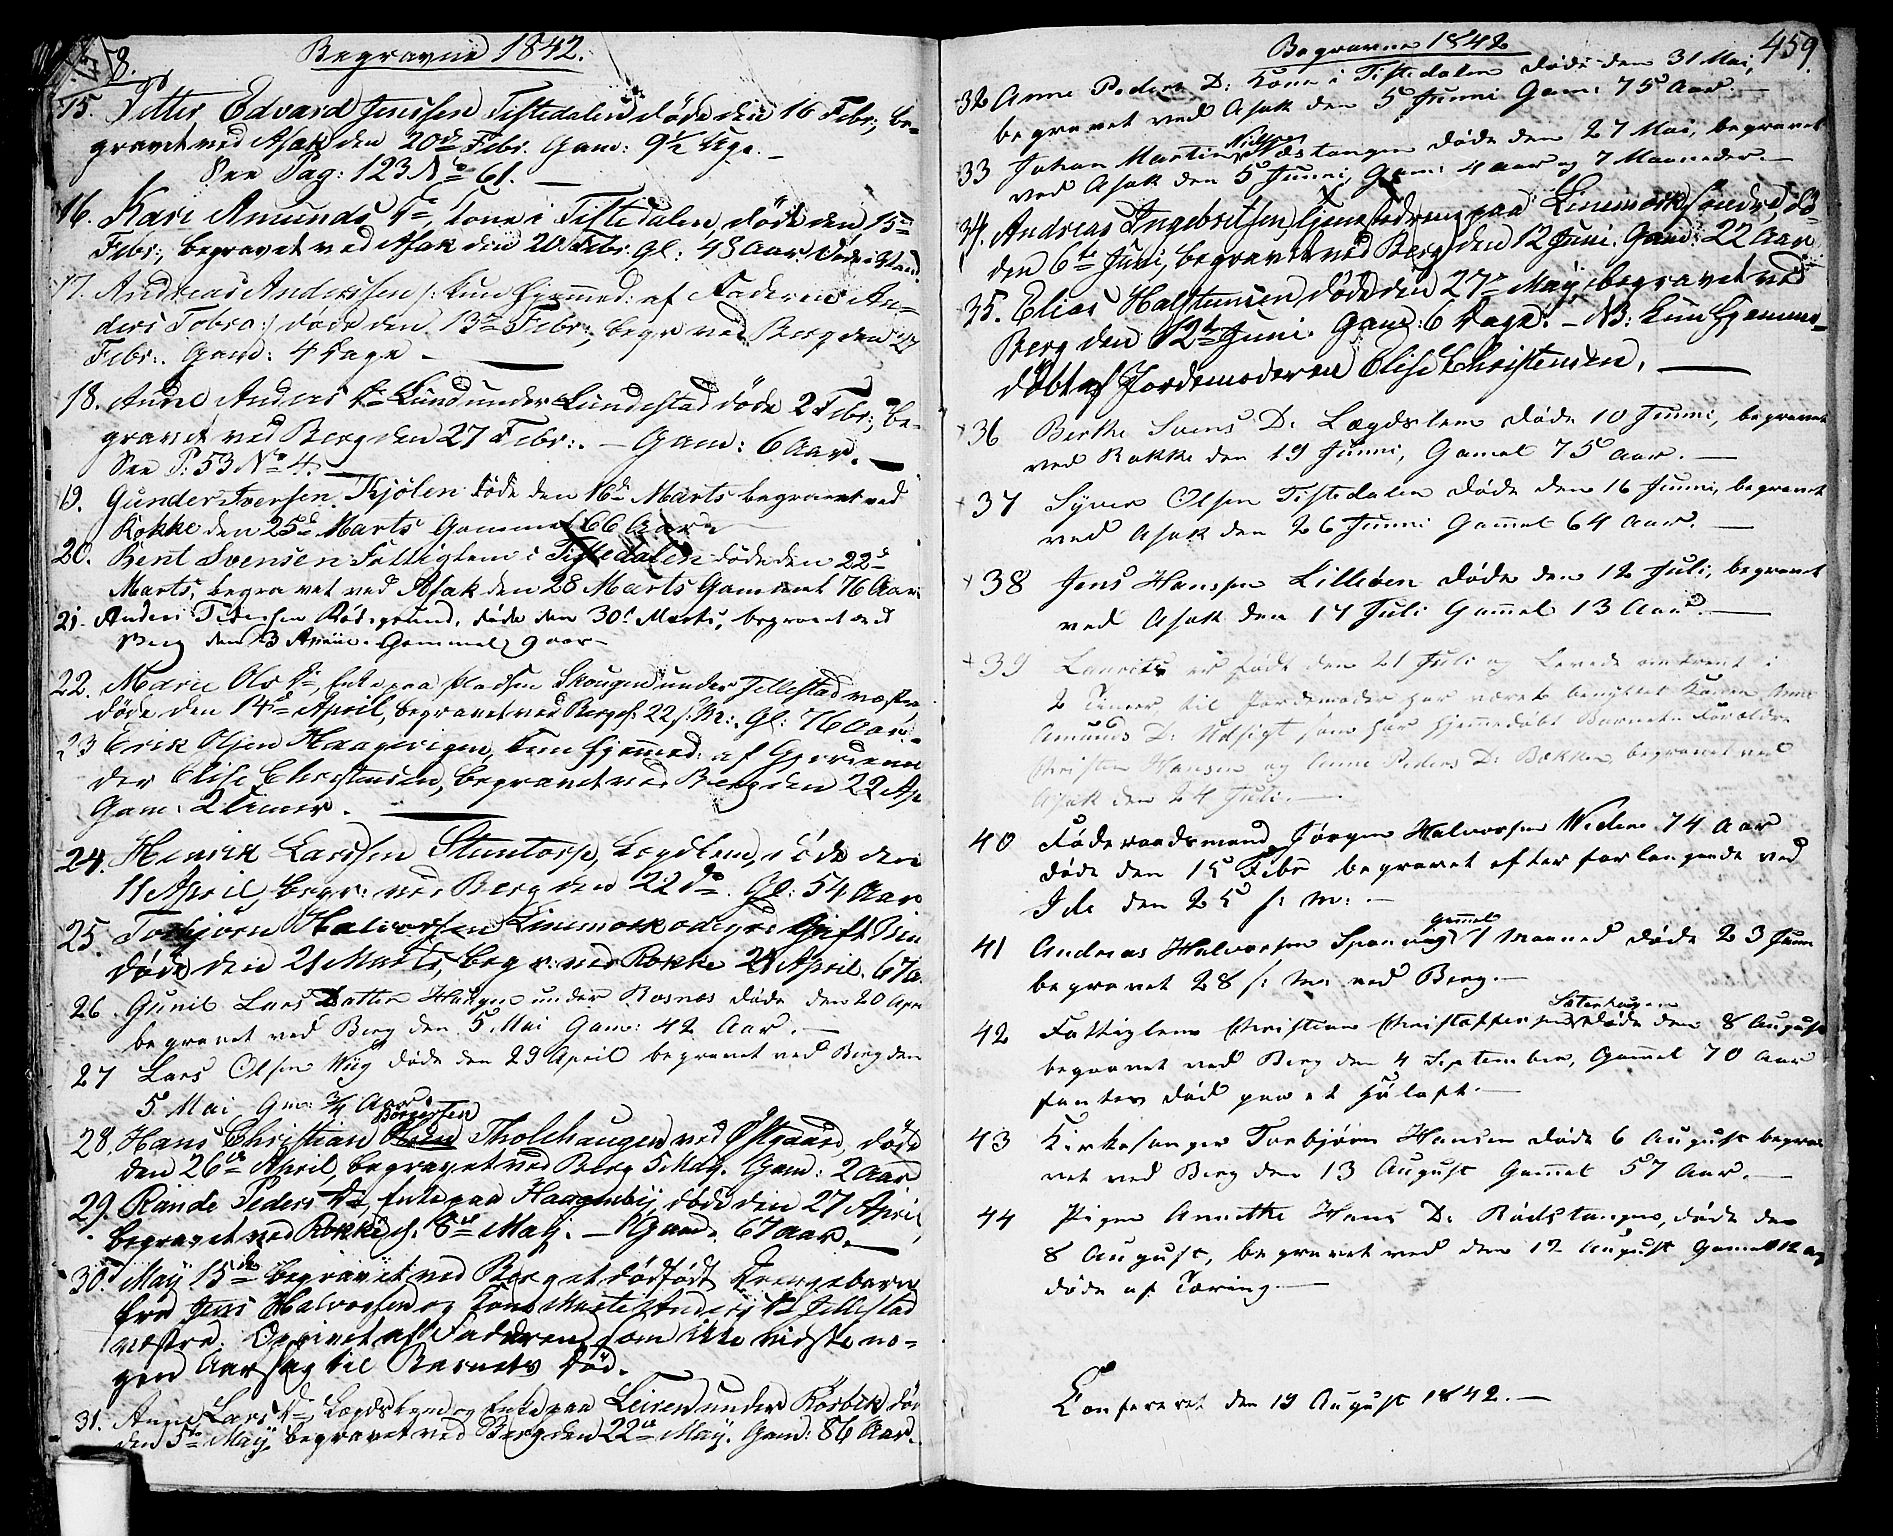 458.
Begravne 1842.
15. Petter Edvard Jenssen Tistedalen døde den 16 Febr:, be-
gravet ved Asak den 20de Febr. Gam: 9½ Uge. –
See Pag: 123 No 61. –
16. Kari Amunds Dr Kone i Tistedalen, døde den 15de
Febr:, begravet ved Asak den 20 Febr. Gl: 48 Aar.
17. Andreas Anderssen /: kun hjemmed: af Faderen An-
ders Tobro :/ døde den 13de Febr:, begr: ved Berg den 27
Febr:. Gam: 4 Dage –
18. Anne Anders Dr Lund under Lundestad døde 2 Febr:, be-
gravet ved Berg den 27 Febr:. – Gam: 6 Aar. –
See P: 53 No 4. –
19. Gunder Iversen Kjølen døde den 16de Marts begravet ved
Rokke den 25de Marts Gammel 66 Aar
20. Bent Svensen Fattiglem i Tistedalen døde den 22de
Marts, begravet ved Asak den 28 Marts Gammel 76 Aar
21. Anders døde den 30te Marts, begravet ved
Berg den 3 April Gammel 9 aar –
22. Marie Ols Dr, Enke paa Pladsen Skougen under Jellestad væstre,
døde den 14de April, begravet ved Berg d: 22 s: M:, Gl: 76 Aar. –
23 Erik Olsen Haagerigen, kun hjemmed: af Gjordemo
der Elise Christensen, begravet ved Berg den 22 Ap
Gam: 2 Timer. –
24. Henrik Larssen Stuntorp, Lægdlem, døde den
11 April, begr: ved Berg den 22de. Gl: 54 Aar
25. Torbjørn Halvorssen Linemork gift
døde den 21 Marts, begr: ved Rokke 24 April. 67 a.
26. Gunil Lars Datter Haugen under Rosnæs døde den 20 Apr
begravet ved Berg den 5 Mai Gam: 42 Aar. –
27 Lars Olsen Wiig døde den 29 April begravet ved Berg den
5 Mai Gm: ¾ Aar.
Børgersen
28. Hans Christian Tholehaugen ved Østgaard, døde
den 26de April, begravet ved Berg 5 May. Gam: 2 Aar
29. Rande Peders Dr, Enke paa Haggenbÿ, døde den 27 April,
begravet ved Rokke d: 8de May. – Gam: 67 aar. –
30. May 15de begravet ved Berg et dødfødt Drengebarn
fra Jens Halvorssen og Kone Marte Anders Dr Jellestad
væstre. Opgivet af Faderen, som ikke vidste no-
gen Aarsag til Barnets Død.
31. Anne Lars Dr, Lægdslem og Enke paa Leiren under Rørbek dø
den 5te May, begravet ved Berg den 22de May. Gam: 86 Aar.
459.
Begravne 1842
32 Anne Peders D: Kone i Tistedalen døde den 31 Mai,
begravet ved Asak den 5 Junni Gam: 75 Aar –
33 Johan Martin Næstangen døde den 27 Mai, begravet
ved Asak den 5 Junni, Gam: 4 aar og 7 Maaneder. –
34. Andreas Ingebretsen, tjenestedreng paa Linemork søndre, dø-
den 6te Juni, begravet ved Berg den 12 Juni. Gam: 22 Aar
35. Elias Halstensen, døde den 27de May, begravet ved
Berg den 12te Juni. Gam: 6 Dage. – NB: kun hjemme-
døbt af Jordemoderen Elise Christensen. –
36 Berthe Svens D: Lægdslem døde 10 Junni, begravet
ved Rokke den 19 Junni, Gamel 75 aar. –
37 Syver Olsen Tistedalen døde den 16 Junni, begravet
ved Asak den 26 Junni Gammel 64 aar. –
38 Jens Hansen Lilleøen døde den 12 Juli, begravet
ved Asak den 17 Juli Gammel 13 Aar. –
39 Laurits er født den 21 Juli og Levede omtrent i
2 Timer, til Jordemoder har været benyttet Konen Anne
Amunds D: Udsigt som har hjemmedøbt Barnet. Forældre
Christen Hansen og Anne Peders D: Bækken, begravet ved
Asak den 24 Juli. –
40 Føderaadsmand Jørgen Halvorsen Weden 74 Aar
døde den 15 Febr begravet efter forlangende ved
Ide den 25 s: m: –
41 Andreas Halvorsen Sponvig gammel 1 Maaned døde 23 Juni
begravet 28 s: m: ved Berg. –
42 Fattiglem Christian Christoffersen døde den 8 August
begravet ved Berg den 4 September, Gammel 70 Aar
fantes død paa et Høloft. –
43 Kirkesanger Torbjørn Hansen døde 6 August begra
vet ved Berg den 13 August Gammel 57 Aar. –
44 Pigen Annethe Hans D: Rødstangen, døde den
8 August, begravet ved den 12 August Gamel 12 aar
døde af Tæring. –
Confereret den 19 August 1842. –